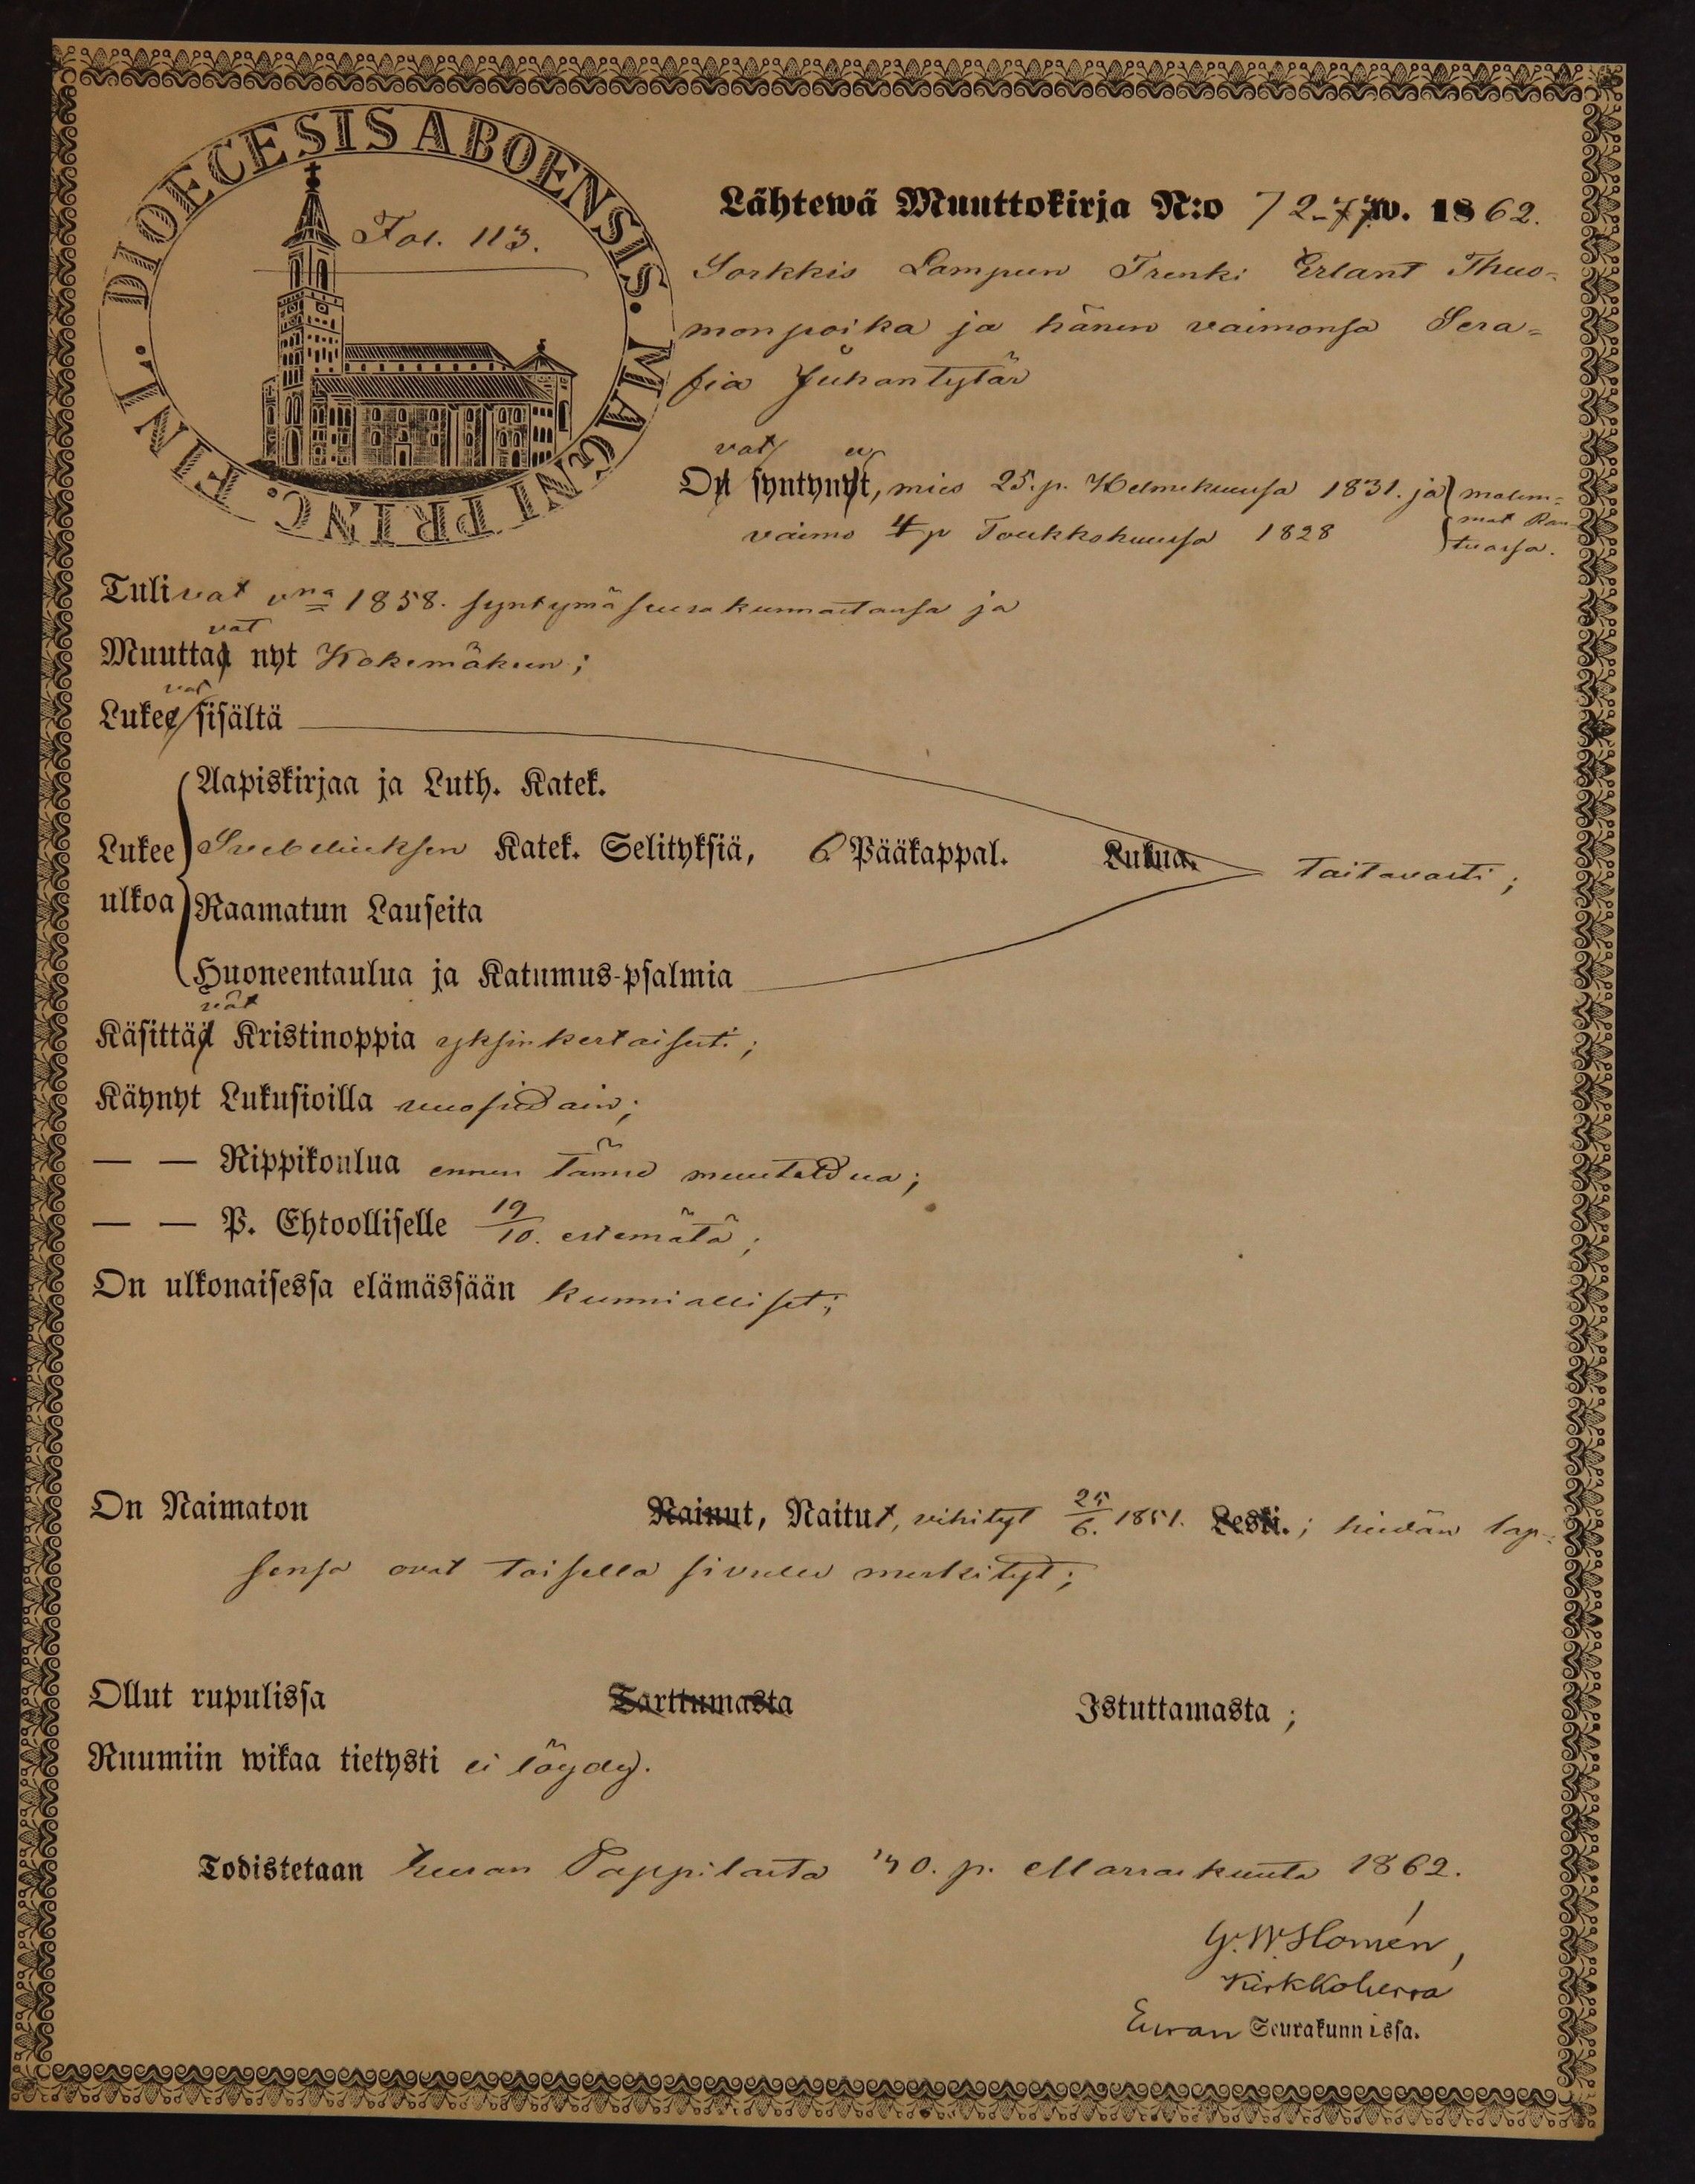 DIOECESIS ABOENSIS. MAGNI PRINC. FENL.
Fol. 113.
Lähtewä Muuttokirja N:o 72-77 w. 1862.
Sorkkis Lampun Trenki Erlant Thuo-
monpoika ja hänen vaimonsa Sera-
fia Juhantytär
vat et
On syntynyt, mies 25. p. Helmikuusa 1831. ja molem-
vaimo 4 p Toukkokuusa 1828 mat
Tulivat vna 1858. syntymäseurakunnastansa ja
vat
Muuttaa nyt Kokemäkeen;
vat
Lukee sisältä
Aapiskirjaa ja Luth. Katek.
Lukee Svebeliuksen Katek. Selityksiä, 6 Pääkappal. Lukua. taitavasti;
ulkoa Raamatun Lauseita
Huoneentaulua ja Katumus-psalmia
vät
Käsittää Kristinoppia yksinkertaisesti;
Käynyt Lukusioilla vuosidain;
— — Rippikoulua ennen tänne muutoldua;
— — P. Ehtoolliselle 19/10. estemätä;
On ulkonaisessa elämässään kunnialliset;
On Naimaton Nainut, Naitut, vihityt 25/6. 1851. Leski.; heidän lap-
sensa ovat toisella sivulla merkityt;
Ollut rupulissa Tarttumasta Istuttamasta;
Ruumiin wikaa tietysti ei löydy.
Todistetaan Euran Pappilasta 30. p. Marraskuuta 1862.
G. W. Homén,
Kirkkoherra
Euran Seurakunnissa.